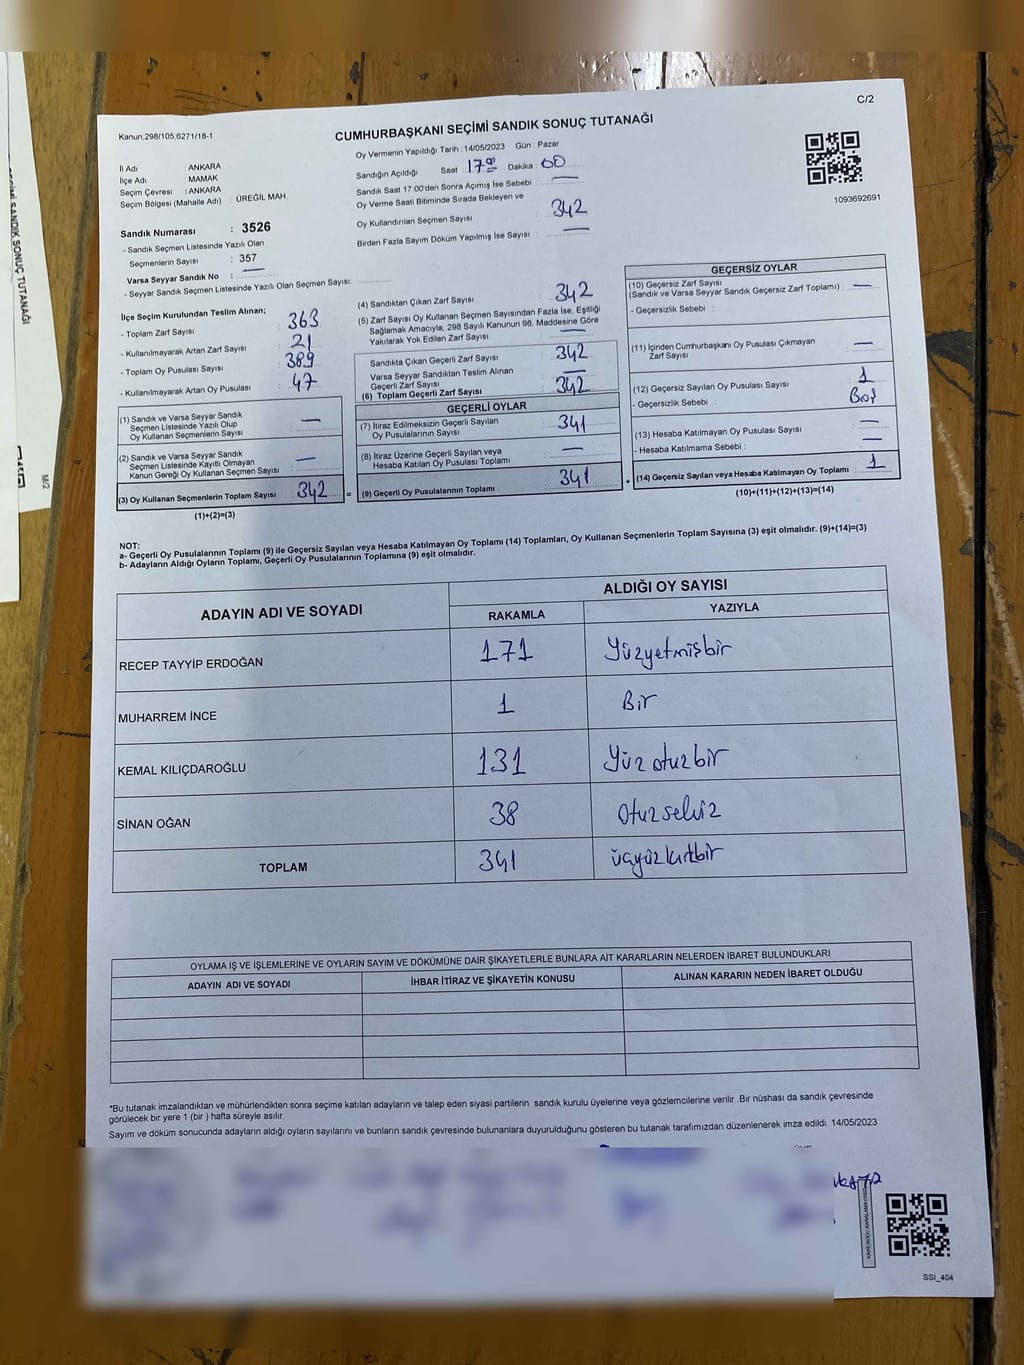 C/2
Kanun;298/105,6271/18-1
CUMHURBAŞKANI SEÇİMİ SANDIK SONUÇ TUTANAĞI
İl Adı : ANKARA
İlçe Adı : MAMAK
Seçim Çevresi : ANKARA
Seçim Bölgesi (Mahalle Adı) : ÜREĞİL MAH.
Sandık Numarası : 3526
- Sandık Seçmen Listesinde Yazılı Olan
Seçmenlerin Sayısı : 357
Varsa Seyyar Sandık No : —
- Seyyar Sandık Seçmen Listesinde Yazılı Olan Seçmen Sayısı:
Oy Vermenin Yapıldığı Tarih : 14/05/2023 Gün : Pazar
Sandığın Açıldığı Saat : 17 00 Dakika : 00
Sandık Saat 17:00'den Sonra Açımış İse Sebebi : —
Oy Verme Saati Bitiminde Sırada Bekleyen ve
Oy Kullandırılan Seçmen Sayısı : 342
Birden Fazla Sayım Döküm Yapılmış İse Sayısı : —
1093692691
İlçe Seçim Kurulundan Teslim Alınan;
- Toplam Zarf Sayısı : 363
- Kullanılmayarak Artan Zarf Sayısı : 21
- Toplam Oy Pusulası Sayısı : 389
- Kullanılmayarak Artan Oy Pusulası : 47
(1) Sandık ve Varsa Seyyar Sandık
Seçmen Listesinde Yazılı Olup
Oy Kullanan Seçmenlerin Sayısı : —
(2) Sandık ve Varsa Seyyar Sandık
Seçmen Listesinde Kayıtlı Olmayan
Kanun Gereği Oy Kullanan Seçmen Sayısı : —
(3) Oy Kullanan Seçmenlerin Toplam Sayısı : 342 =
(1)+(2)=(3)
(4) Sandıktan Çıkan Zarf Sayısı : 342
(5) Zarf Sayısı Oy Kullanan Seçmen Sayısından Fazla İse, Eşitliği
Sağlamak Amacıyla, 298 Sayılı Kanunun 98. Maddesine Göre
Yakılarak Yok Edilen Zarf Sayısı : —
Sandıkta Çıkan Geçerli Zarf Sayısı : 342
Varsa Seyyar Sandıktan Teslim Alınan
Geçerli Zarf Sayısı : —
(6) Toplam Geçerli Zarf Sayısı : 342
GEÇERLİ OYLAR
(7) İtiraz Edilmeksizin Geçerli Sayılan
Oy Pusulalarının Sayısı : 341
(8) İtiraz Üzerine Geçerli Sayılan veya
Hesaba Katılan Oy Pusulası Toplamı : —
(9) Geçerli Oy Pusulalarının Toplamı : 341 +
GEÇERSİZ OYLAR
(10) Geçersiz Zarf Sayısı
(Sandık ve Varsa Seyyar Sandık Geçersiz Zarf Toplamı) : —
- Geçersizlik Sebebi :
(11) İçinden Cumhurbaşkanı Oy Pusulası Çıkmayan
Zarf Sayısı : —
(12) Geçersiz Sayılan Oy Pusulası Sayısı : 1
- Geçersizlik Sebebi : Boş
(13) Hesaba Katılmayan Oy Pusulası Sayısı : —
- Hesaba Katılmama Sebebi : —
(14) Geçersiz Sayılan veya Hesaba Katılmayan Oy Toplamı : 1
(10)+(11)+(12)+(13)=(14)
NOT:
a- Geçerli Oy Pusulalarının Toplamı (9) ile Geçersiz Sayılan veya Hesaba Katılmayan Oy Toplamı (14) Toplamları, Oy Kullanan Seçmenlerin Toplam Sayısına (3) eşit olmalıdır. (9)+(14)=(3)
b- Adayların Aldığı Oyların Toplamı, Geçerli Oy Pusulalarının Toplamına (9) eşit olmalıdır.
ADAYIN ADI VE SOYADI ALDIĞI OY SAYISI
RAKAMLA YAZIYLA
RECEP TAYYİP ERDOĞAN 171 Yüzyetmişbir
MUHARREM İNCE 1 Bir
KEMAL KILIÇDAROĞLU 131 Yüz otuzbir
SİNAN OĞAN 38 Otuzsekiz
TOPLAM 341 üçyüzkırkbir
OYLAMA İŞ VE İŞLEMLERİNE VE OYLARIN SAYIM VE DÖKÜMÜNE DAİR ŞİKAYETLERLE BUNLARA AİT KARARLARIN NELERDEN İBARET BULUNDUKLARI
ADAYIN ADI VE SOYADI İHBAR İTİRAZ VE ŞİKAYETİN KONUSU ALINAN KARARIN NEDEN İBARET OLDUĞU
*Bu tutanak imzalandıktan ve mühürlendikten sonra seçime katılan adayların ve talep eden siyasi partilerin sandık kurulu üyelerine veya gözlemcilerine verilir .Bir nüshası da sandık çevresinde
görülecek bir yere 1 (bir ) hafta süreyle asılır.
Sayım ve döküm sonucunda adayların aldığı oyların sayılarını ve bunların sandık çevresinde bulunanlara duyurulduğunu gösteren bu tutanak tarafımızdan düzenlenerek imza edildi. 14/05/2023
SSI_404
SANDIK SONUÇ TUTANAĞI
M/2